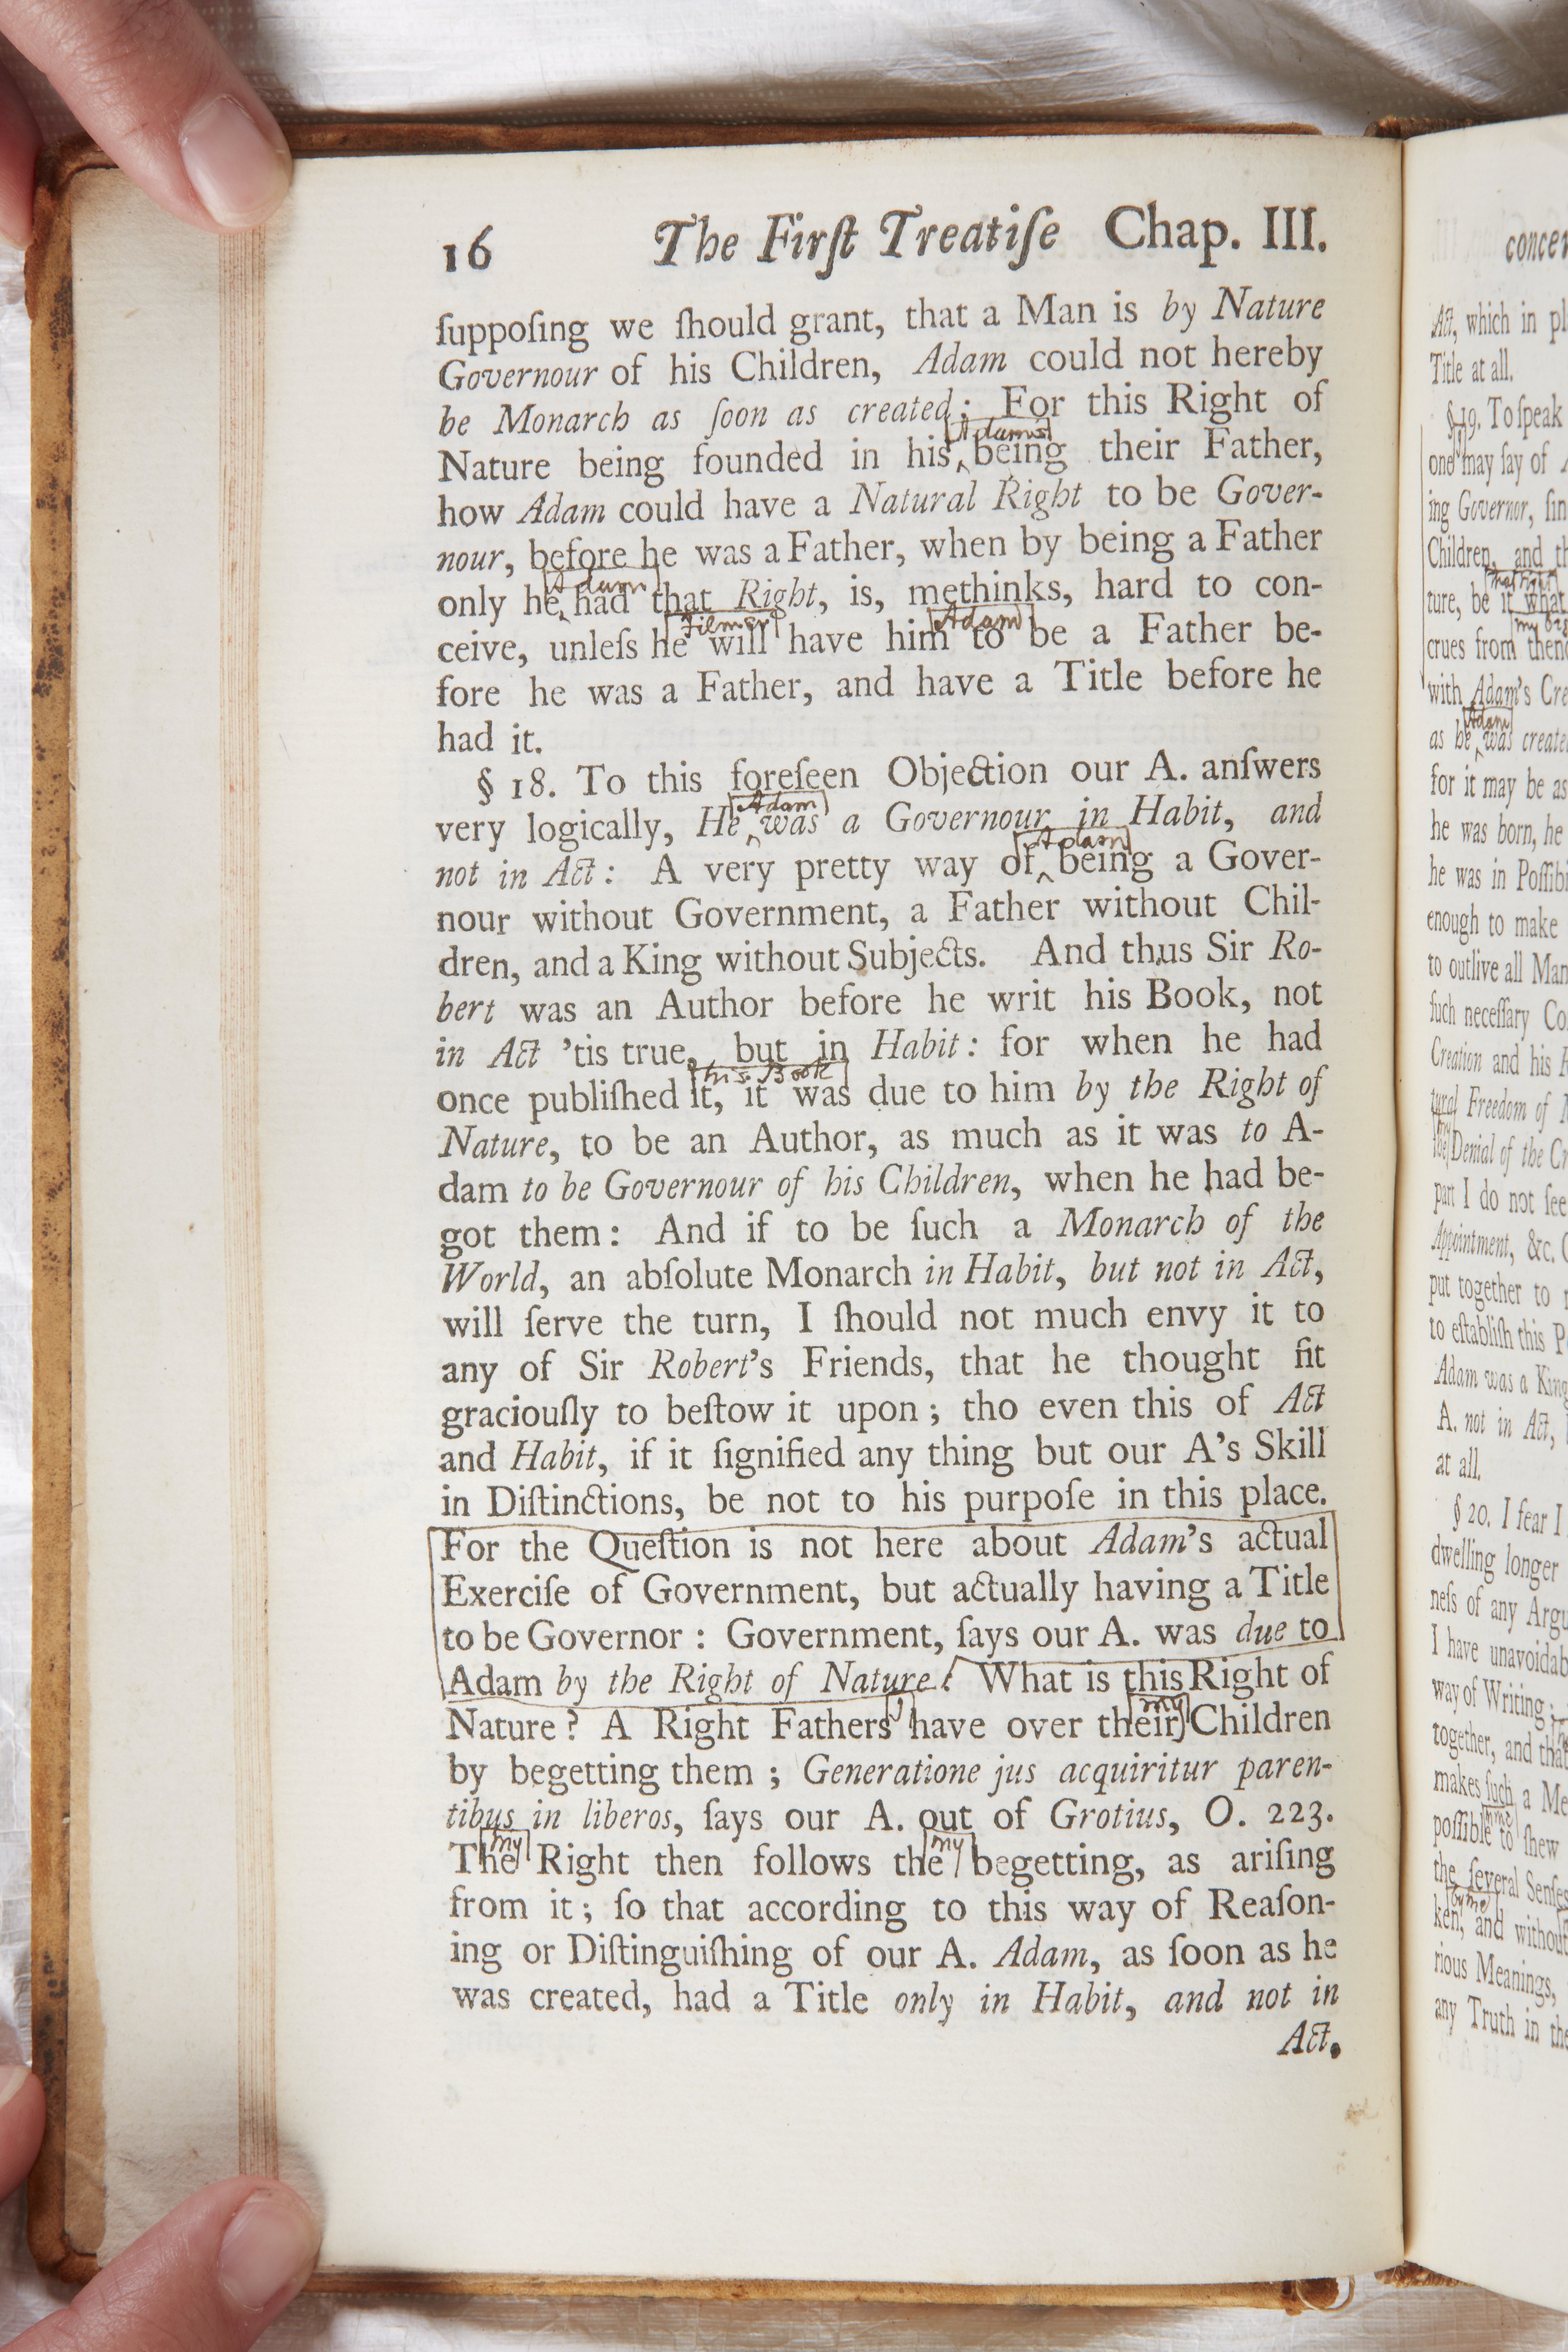 16 The Firſt Treatiſe Chap. III.
ſuppoſing we ſhould grant, that a Man is by Nature
Governour of his Children, Adam could not hereby
be Monarch as ſoon as created; For this Right of
Adams
Nature being founded in his ‸ being their Father,
how Adam could have a Natural Right to be Gover-
nour, before he was a Father, when by being a Father
Adam
only he ‸ had that Right, is, methinks, hard to con-
Filmer Adam
ceive, unleſs he will have him to be a Father be-
fore he was a Father, and have a Title before he
had it.
§ 18. To this foreſeen Objection our A. anſwers
Adam
very logically, He ‸ was a Governour in Habit, and
Adam
not in Act: A very pretty way of ‸ being a Gover-
nour without Government, a Father without Chil-
dren, and a King without Subjects. And thus Sir Ro-
bert was an Author before he writ his Book, not
in Act 'tis true, but in Habit: for when he had
his Book
once publiſhed it, it was due to him by the Right of
Nature, to be an Author, as much as it was to A-
dam to be Governour of his Children, when he had be-
got them: And if to be ſuch a Monarch of the
World, an abſolute Monarch in Habit, but not in Act,
will ſerve the turn, I ſhould not much envy it to
any of Sir Robert's Friends, that he thought fit
graciouſly to beſtow it upon; tho even this of Act
and Habit, if it ſignified any thing but our A's Skill
in Diſtinctions, be not to his purpoſe in this place.
For the Queſtion is not here about Adam's actual
Exerciſe of Government, but actually having a Title
to be Governor: Government, ſays our A. was due to
Adam by the Right of Nature: What is this Right of
my
Nature? A Right Fathers have over their Children
by begetting them; Generatione jus acquiritur paren-
tibus in liberos, ſays our A. out of Grotius, O. 223.
my my
The Right then follows the begetting, as ariſing
from it; ſo that according to this way of Reaſon-
ing or Diſtinguiſhing of our A. Adam, as ſoon as he
was created, had a Title only in Habit, and not in
Act.
Act, which in
Title at all.
§ 19. To ſpeak
one may ſay of
ing Governor,
Children, and
that right
ture, be it what
my
crues from
with Adam's
Adam
as he ‸ was
for it may be as
he was born, he
he was in
enough to make
to outlive all
ſuch neceſſary
Creation and his
tural Freedom of
Denial of the
part I do not ſee
Appointment, &c.
put together to
to eſtabliſh this
Adam was a
A. not in Act,
at all.
§ 20. I fear I
dwelling longer
neſs of any
I have
way of Writing;
together, and that
makes ſuch a
poſſible to ſhew
the ſeveral
by me
ken, and
rious Meanings,
any Truth in